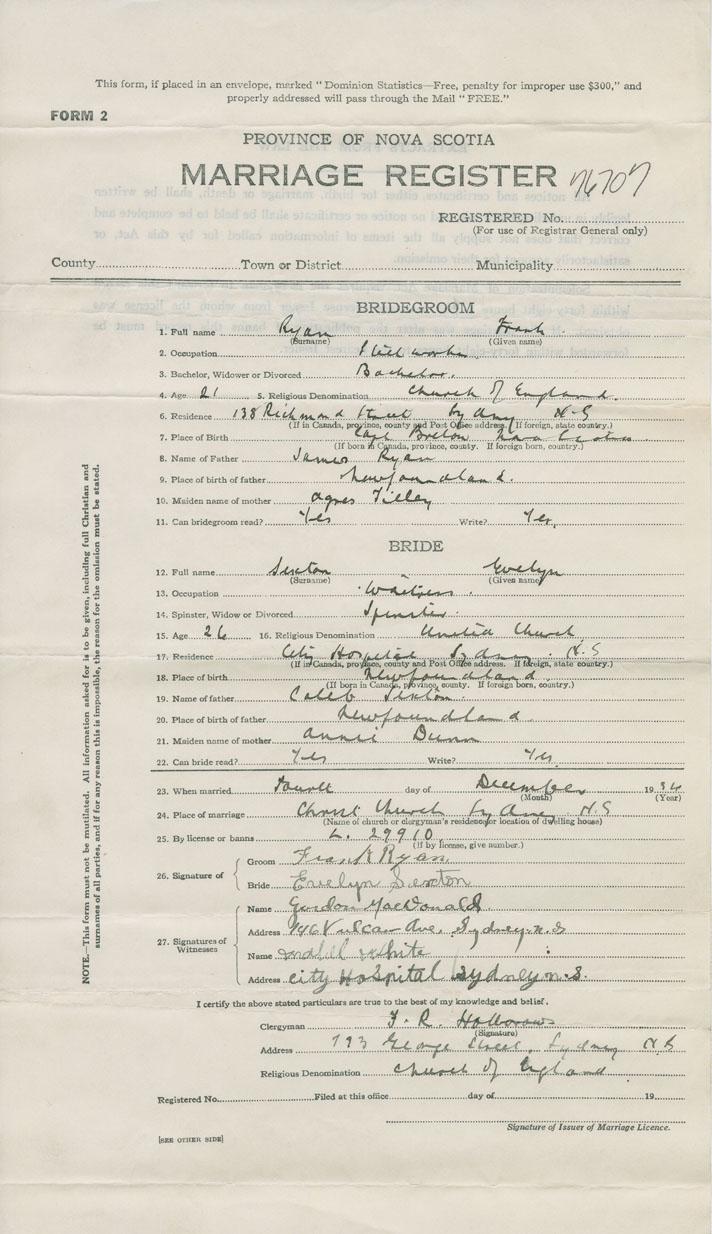 This form, if placed in an envelope, marked "Dominion Statistics—Free, penalty for improper use $300," and
properly addressed will pass through the Mail "FREE."
FORM 2
PROVINCE OF NOVA SCOTIA
MARRIAGE REGISTER 76707
REGISTERED No.
(For use of Registrar General only)
County Town or District Municipality
BRIDEGROOM
1. Full name Ryan Frank
(Surname) (Given name)
2. Occupation Steel worker
3. Bachelor, Widower or Divorced Bachelor.
4. Age 21 5. Religious Denomination Church of England.
6. Residence 138 Richmond Street Sydney N-S
(If in Canada, province, county and Post Office address. If foreign, state country.)
7. Place of Birth Cape Breton Nova Scotia
(If born in Canada, province, county. If foreign born, country.)
8. Name of Father James Ryan
9. Place of birth of father Newfoundland.
10. Maiden name of mother Agnes Tilley
11. Can bridegroom read? Yes Write? Yes,
BRIDE
12. Full name Sexton Evelyn
(Surname) (Given name)
13. Occupation Waitress.
14. Spinster, Widow or Divorced Spinster.
15. Age 26 16. Religious Denomination United Church
17. Residence City Hospital Sydney. N.S
(If in Canada, province, county and Post Office address. If foreign, state country.)
18. Place of birth Newfoundland.
(If born in Canada, province, county. If foreign born, country.)
19. Name of father Caleb Sexton
20. Place of birth of father Newfoundland
21. Maiden name of mother Annie Dunn
22. Can bride read? Yes Write? Yes,
23. When married Fourth day of December 19 34
(Month) (Year)
24. Place of marriage Christ Church Sydney N.S
(Name of church or clergyman's residence, or location of dwelling house)
25. By license or banns L. 29910
(If by license, give number.)
26. Signature of
Groom Frank Ryan
Bride Evelyn Sexton
27. Signatures of Witnesses
Name Gordon MacDonald
Address Vulcan Ave, Sydney n.s
Name White
Address City Hospital Sydney n.s.
I certify the above stated particulars are true to the best of my knowledge and belief.
Clergyman F. R.
(Signature)
Address 793 George Street, Sydney N S
Religious Denomination Church of England
Registered No. Filed at this office day of 19
Signature of Issuer of Marriage Licence.
[SEE OTHER SIDE]
NOTE.—This form must not be mutilated. All information asked for is to be given, including full Christian and
surnames of all parties, and if for any reason this is impossible, the reason for the omission must be stated.